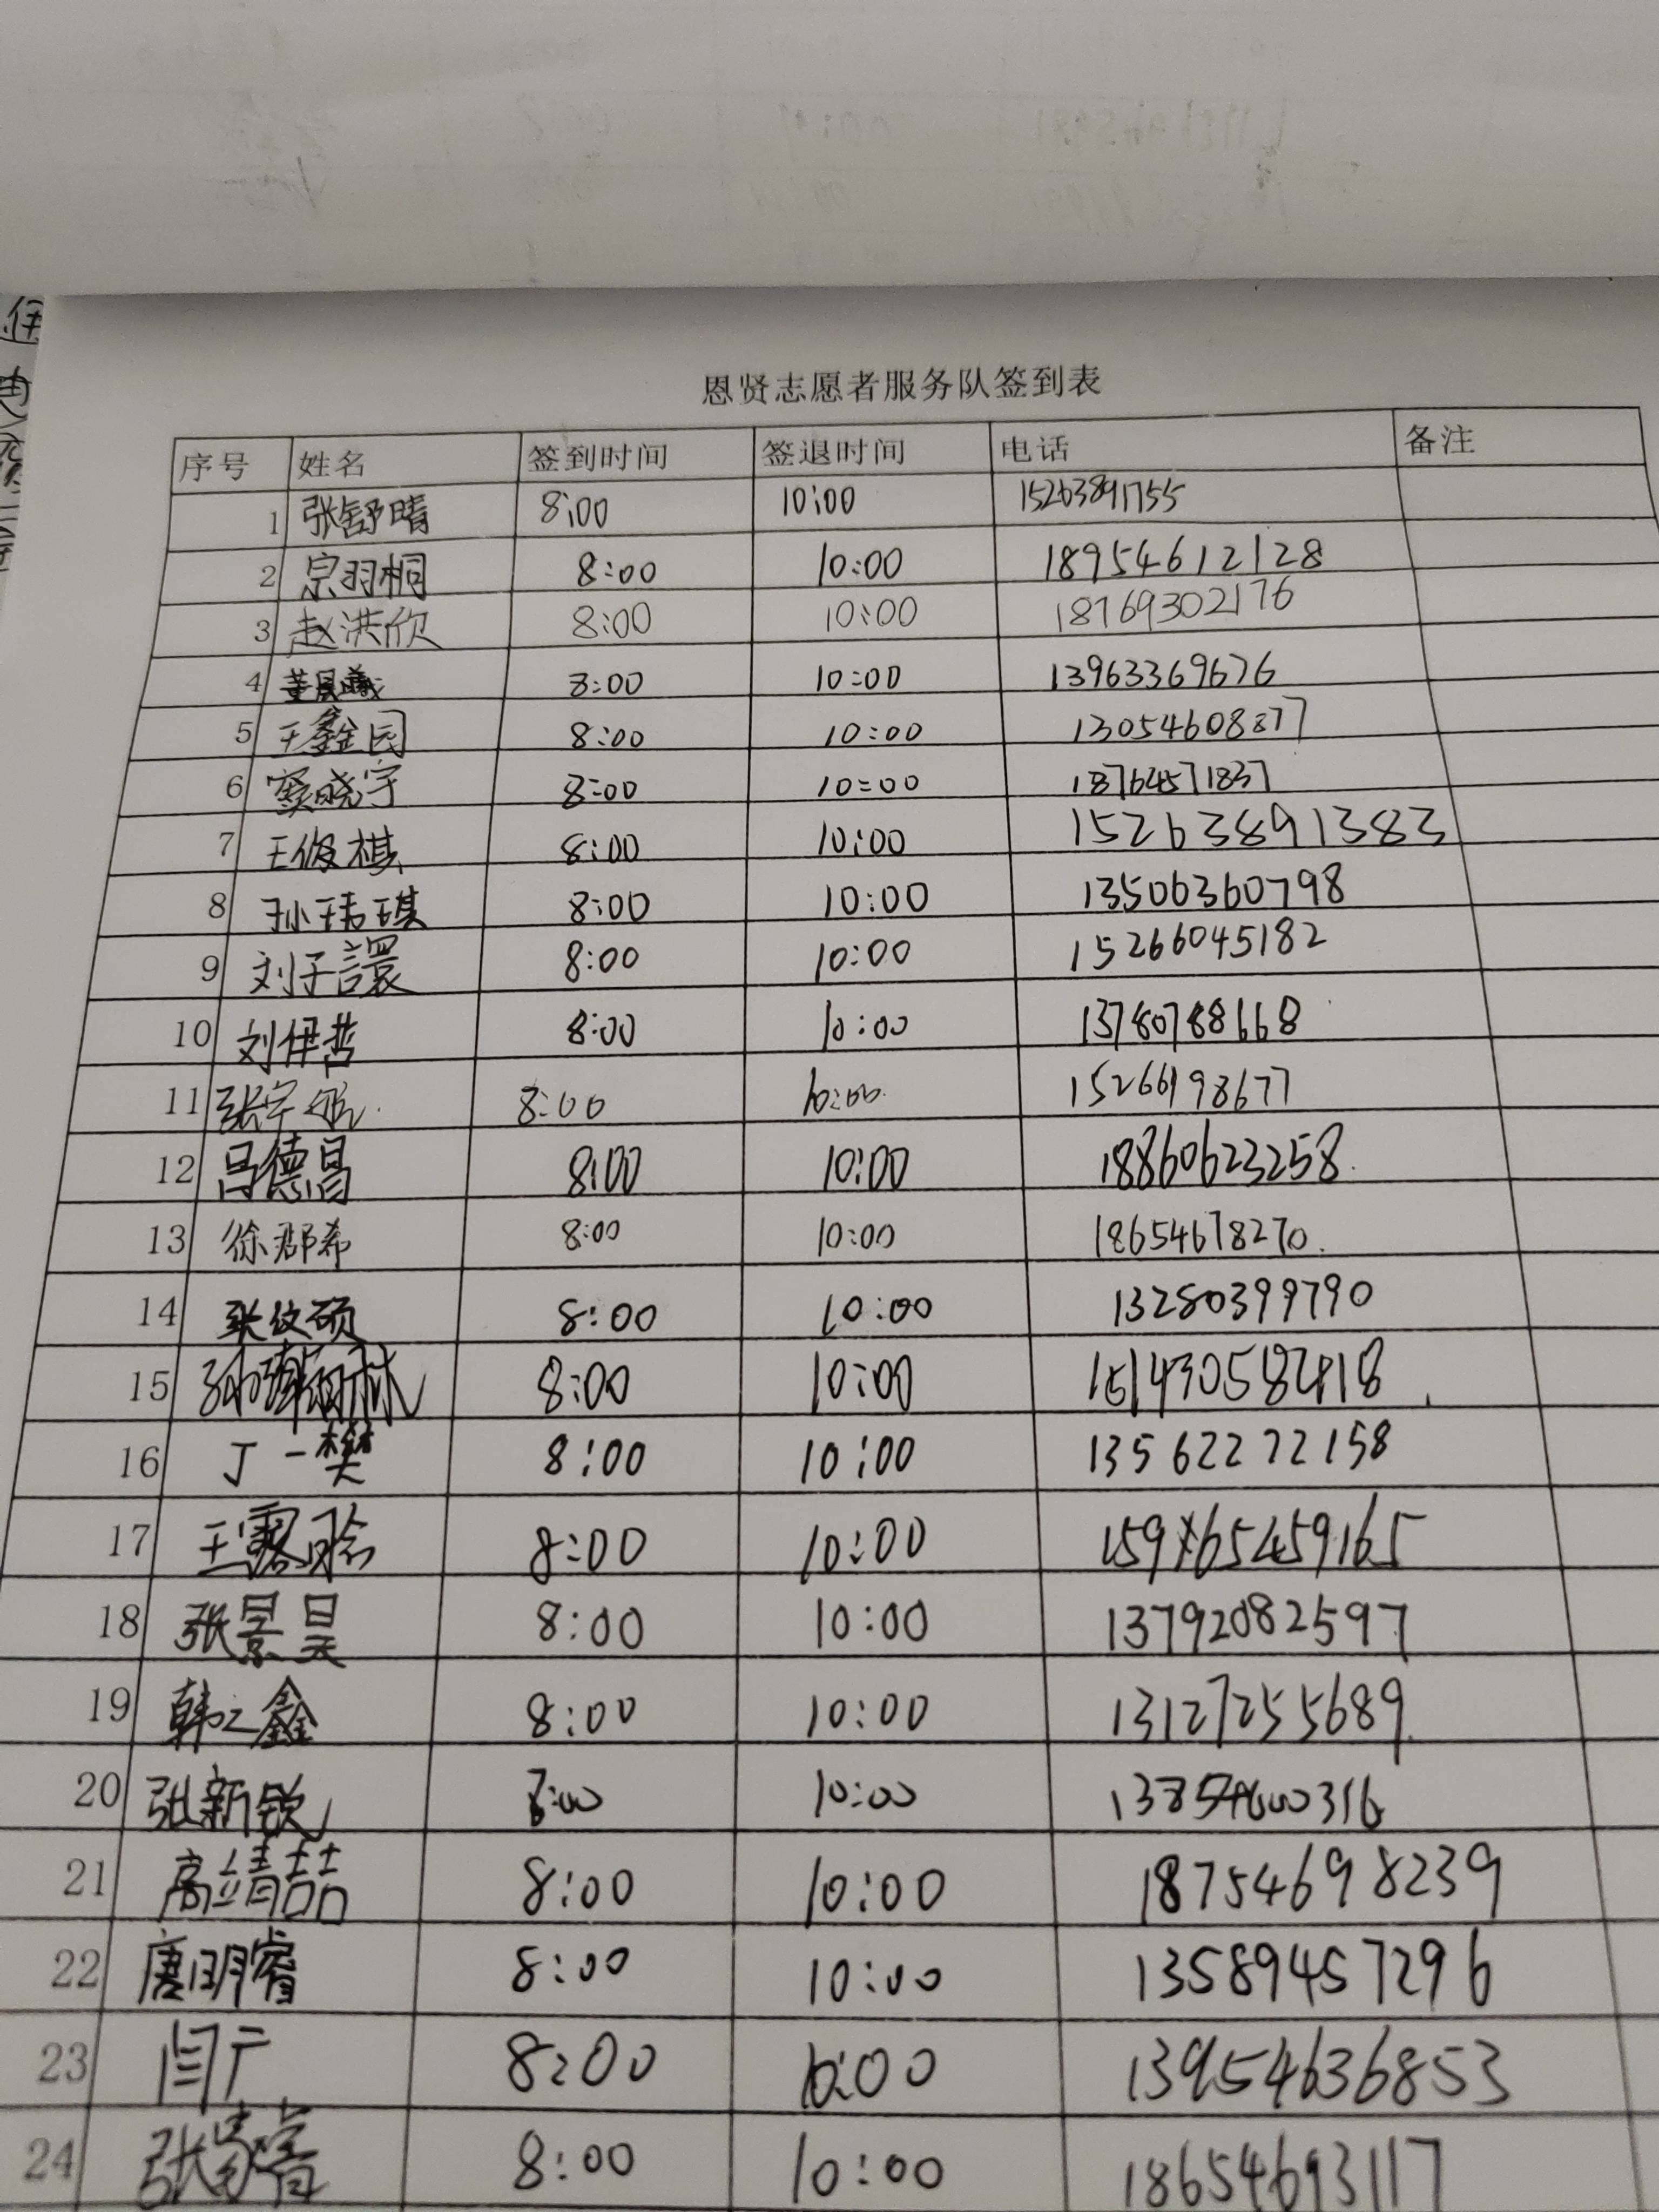 恩贤志愿者服务队签到表
序号 姓名 签到时间 签退时间 电话 备注
1 张舒晴 8:00 10:00 15263891755
2 宗羽桐 8:00 10:00 18954612128
3 赵洪欣 8:00 10:00 18769302176
4 董晨曦 8:00 10:00 13963369676
5 王鑫园 8:00 10:00 13054608877
6 窦晓宇 8:00 10:00 18764571837
7 王俊棋 8:00 10:00 15263891383
8 孙玮琪 8:00 10:00 13506360798
9 刘子譞 8:00 10:00 15266045182
10 刘伊哲 8:00 10:00 13780788668
11 张宇 8:00 10:00 15266198677
12 吕德昌 8:00 10:00 18860623258
13 徐郡希 8:00 10:00 18654678270
14 张纹硕 8:00 10:00 13280399790
15 8:00 10:00
16 丁一樊 8:00 10:00 13562272158
17 王露晗 8:00 10:00
18 张景昊 8:00 10:00 13792082597
19 韩之鑫 8:00 10:00 13127255689
20 张新锐 8:00 10:00
21 高靖喆 8:00 10:00 18754698239
22 唐明睿 8:00 10:00 13589457296
23 闫广 8:00 10:00 13954636853
24 张 8:00 10:00 18654693117